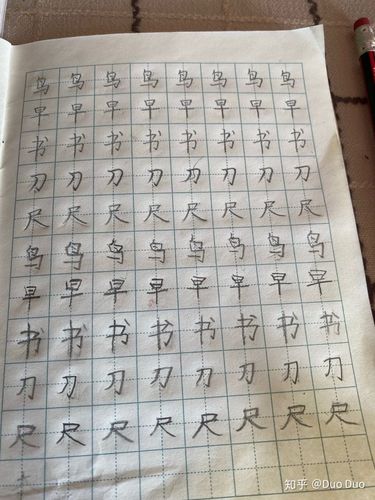 鸟鸟鸟鸟鸟鸟鸟鸟
早早早早早早早早
书书书书书书书书
刀刀刀刀刀刀刀刀
尺尺尺尺尺尺尺尺
鸟鸟鸟鸟鸟鸟鸟鸟
早早早早早早早早
书书书书书书书书
刀刀刀刀刀刀刀刀
尺尺尺尺尺尺尺尺
知乎 @Duo Duo